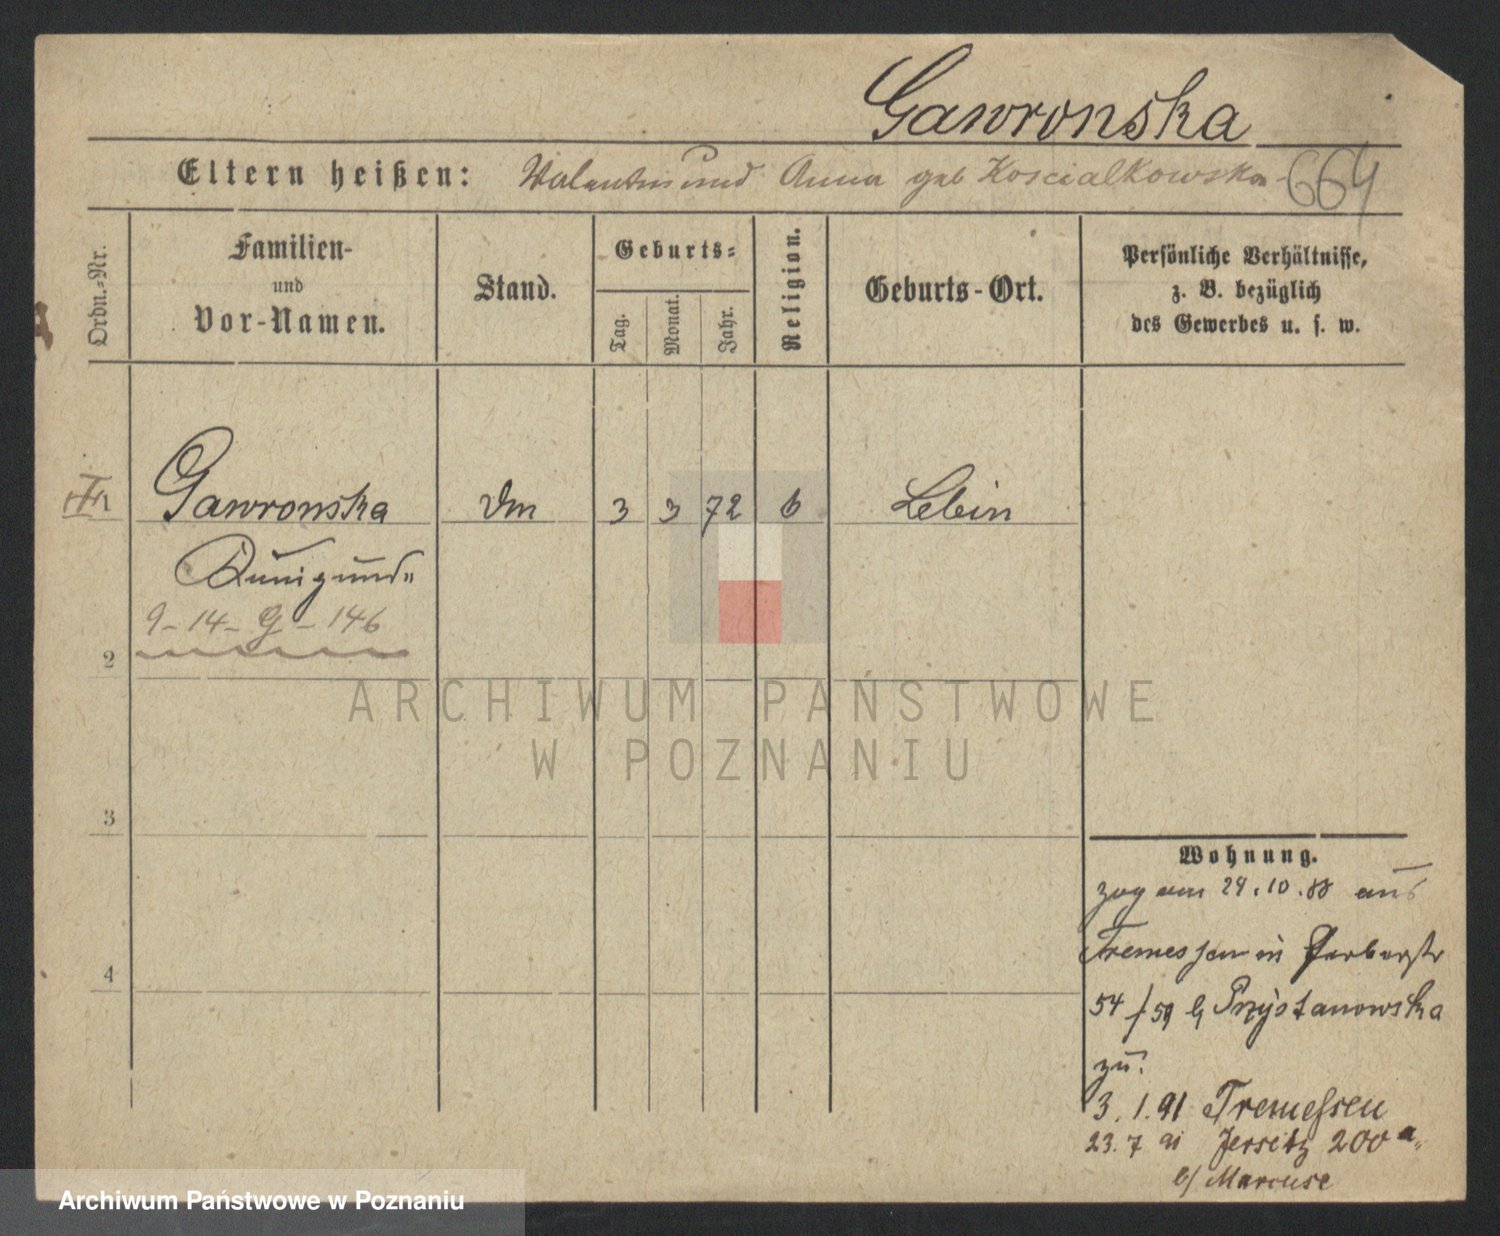 Gawronska
Eltern heißen: Valentin und Anna geb Koscialkowska 664
Ordn.-Nr.
Familien-
und
Vor-Namen.
Stand.
Geburts-
Tag.
Monat.
Jahr.
Religion.
Geburts-Ort.
Persönliche Verhältnisse,
z. B. bezüglich
des Gewerbes u. s. w.
Gawronska 3 3 72 Lebin
Kunigund
9-14-G-146
2
3
4
Wohnung.
zog am 24.10.88 aus
Tremessen in Gerberstr
54/59 Przystanowska
zu:
3.1.91 Tremessen
23.7 91 Jersitz 200a
b/ Marcuse
ARCHIWUM PAŃSTWOWE
W POZNANIU
Archiwum Państwowe w Poznaniu